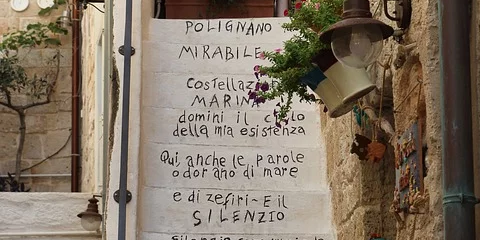 POLIGNANO
MIRABILE
Costellaz
MARINA
domini il cielo
della mia esistenza
Qui, anche le parole
odorano di mare
e di zefiri - E il
SILENZIO